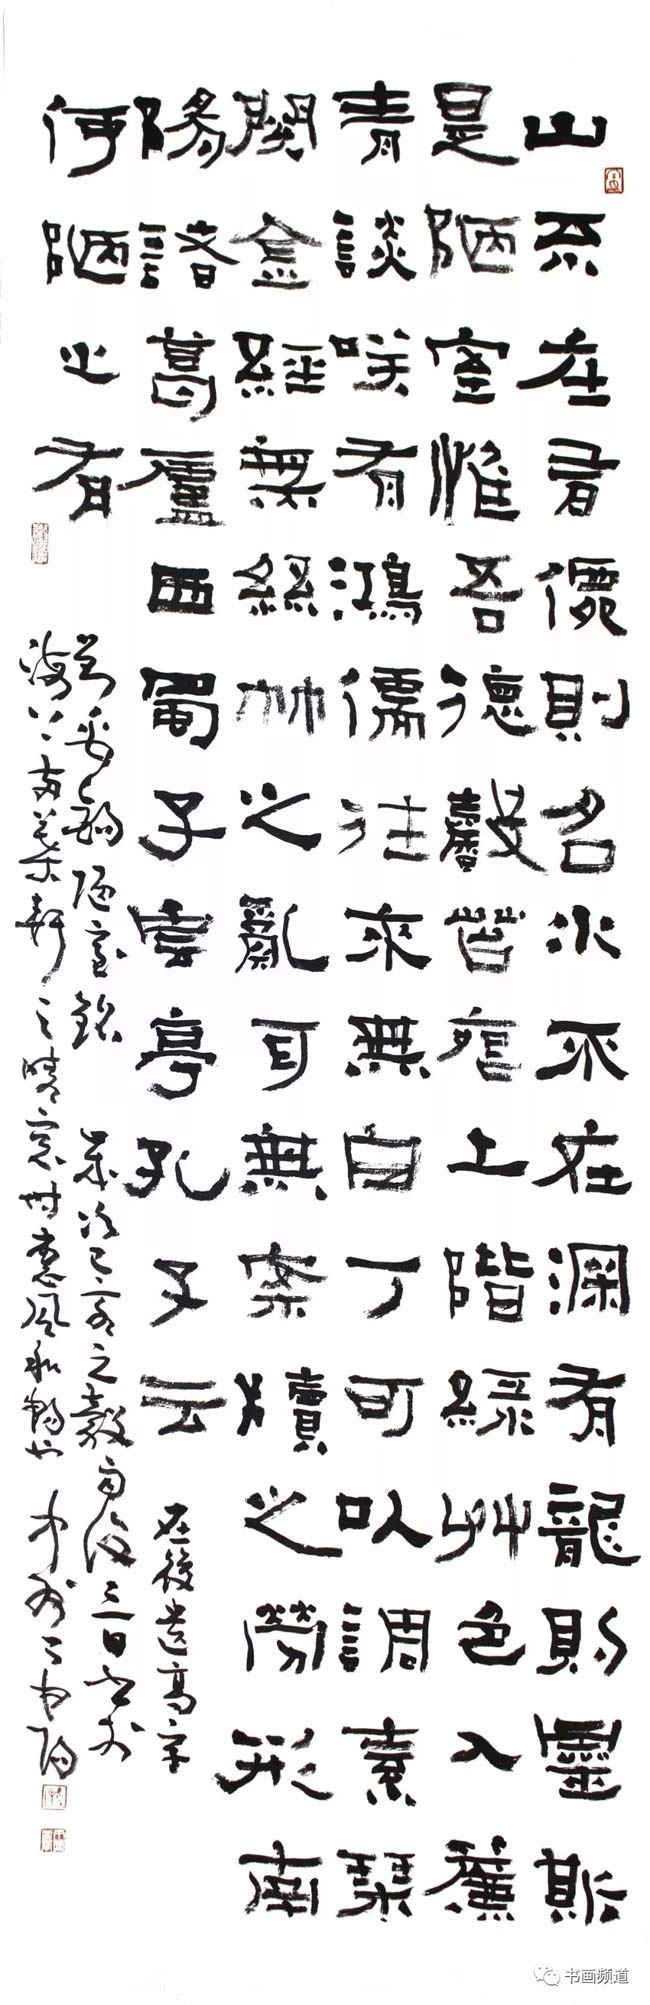 山不在有僊則名水不在渊有龍則靈斯
是陋室惟吾德馨苔痕上階綠艸色入簾
青談咲有鴻儒往來無白丁可以調素琴
閱金經無絲竹之亂耳無案牘之勞形南
陽諸葛廬西蜀子雲亭孔子云
在後遺高字
何陋之有
劉禹錫陋室銘 歲次己亥之穀雨後三日書於
海上軒之晴窗時惠風和暢也
书画频道